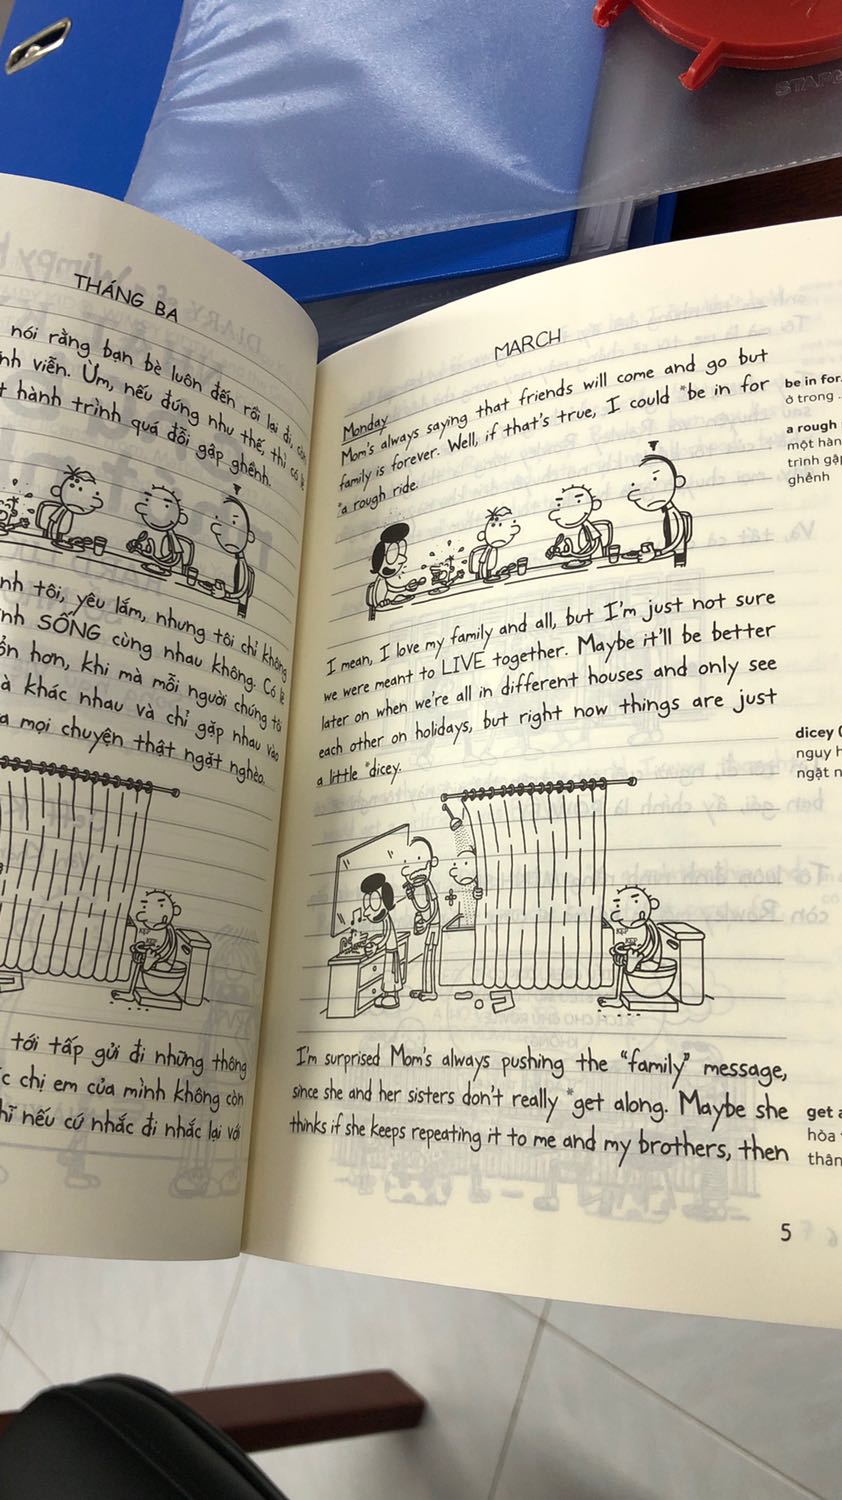 THÁNG BA
nói rằng bạn bè luôn đến rồi lại đi, còn
viễn. Ừm, nếu đúng như thế, thì có lẽ
hành trình quá đỗi gập ghềnh.
tôi, yêu lắm, nhưng tôi chỉ không
SỐNG cùng nhau không. Có lẽ
hơn, khi mà mỗi người chúng tôi
khác nhau và chỉ gặp nhau vào
mọi chuyện thật ngặt nghèo.
tới tấp gửi đi những thông
chị em của mình không còn
nếu cứ nhắc đi nhắc lại với
MARCH
Monday
Mom's always saying that friends will come and go but
family is forever. Well, if that's true, I could *be in for
*a rough ride.
I mean, I love my family and all, but I'm just not sure
we were meant to LIVE together. Maybe it'll be better
later on when we're all in different houses and only see
each other on holidays, but right now things are just
a little *dicey.
I'm surprised Mom's always pushing the "family" message,
since she and her sisters don't really *get along. Maybe she
thinks if she keeps repeating it to me and my brothers, then
5
be in for
ở trong
a rough
một hàn
trình gập
ghềnh
dicey
nguy
ngặt
get
hòa
thân